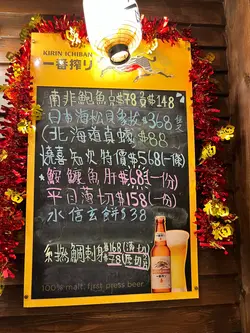 KIRIN ICHIBAN
一番搾り
南非鮑魚 $78 $148
日本海松貝 $368
(北海道真蠔 $88
燒喜知次特價$568(一條)
鮟鱇魚肝$168(一份)
平目薄切$158(一份)
水信玄餅$38
鯛刺身 $168(薄切)
$78(厚切)
100% malt. first press beer.